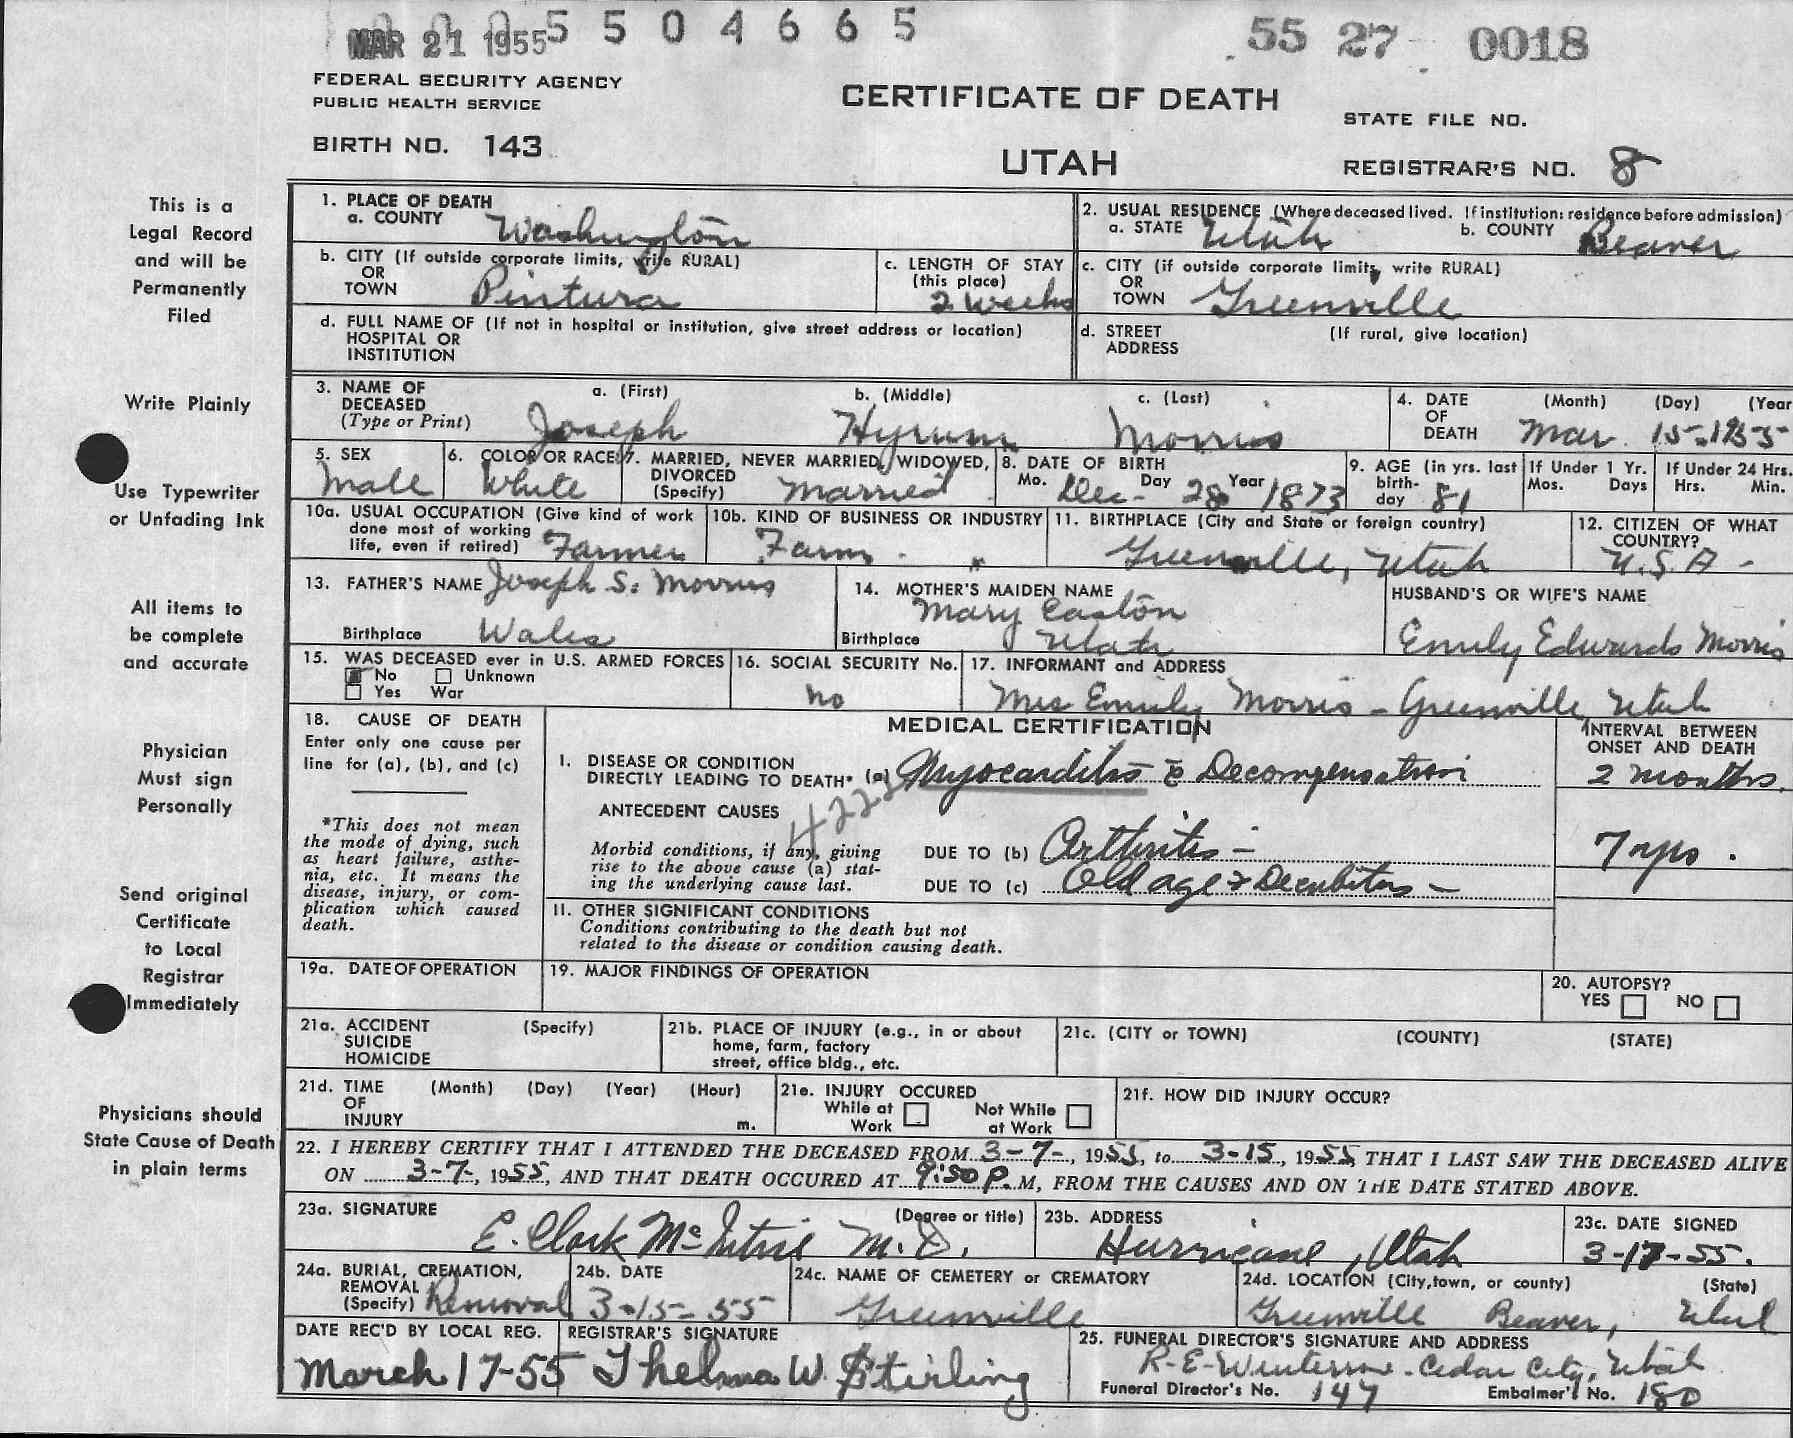 MAR 21 1955 5 5 0 4 6 6 5
55 27 0018
FEDERAL SECURITY AGENCY
PUBLIC HEALTH SERVICE
CERTIFICATE OF DEATH
STATE FILE NO.
BIRTH NO. 143
UTAH
REGISTRAR'S NO. 8
This is a
Legal Record
and will be
Permanently
Filed
Write Plainly
Use Typewriter
or Unfading Ink
All items to
be complete
and accurate
Physician
Must sign
Personally
Send original
Certificate
to Local
Registrar
Immediately
Physicians should
State Cause of Death
in plain terms
1. PLACE OF DEATH
a. COUNTY Washington
2. USUAL RESIDENCE (Where deceased lived. If institution: residence before admission)
a. STATE Utah b. COUNTY Beaver
b. CITY (If outside corporate limits, write RURAL)
OR
TOWN Pintura
c. LENGTH OF STAY
(this place)
2 weeks
c. CITY (if outside corporate limits, write RURAL)
OR
TOWN Greenville
d. FULL NAME OF (If not in hospital or institution, give street address or location)
HOSPITAL OR
INSTITUTION
d. STREET (If rural, give location)
ADDRESS
3. NAME OF DECEASED
(Type or Print)
a. (First) b. (Middle) c. (Last)
Joseph Hyrum Morris
4. DATE OF DEATH (Month) (Day) (Year
Mar. 15-1955
5. SEX
Male
6. COLOR OR RACE
White
7. MARRIED, NEVER MARRIED, WIDOWED,
DIVORCED
(Specify) Married
8. DATE OF BIRTH
Mo. Dec- Day 28 Year 1873
9. AGE (in yrs. last
birth-
day 81
If Under 1 Yr.
Mos. Days
If Under 24 Hrs.
Hrs. Min.
10a. USUAL OCCUPATION (Give kind of work
done most of working
life, even if retired) Farmer
10b. KIND OF BUSINESS OR INDUSTRY
Farm
11. BIRTHPLACE (City and State or foreign country)
Greenville, Utah
12. CITIZEN OF WHAT
COUNTRY?
U.S.A -
13. FATHER'S NAME Joseph S. Morris
Birthplace Wales
14. MOTHER'S MAIDEN NAME
Mary Easton
Birthplace Utah
HUSBAND'S OR WIFE'S NAME
Emily Edwards Morris
15. WAS DECEASED ever in U.S. ARMED FORCES
No Unknown
Yes War
16. SOCIAL SECURITY No.
no
17. INFORMANT and ADDRESS
Mrs Emily Morris - Greenville Utah
18. CAUSE OF DEATH
Enter only one cause per
line for (a), (b), and (c)
*This does not mean
the mode of dying, such
as heart failure, asthe-
nia, etc. It means the
disease, injury, or com-
plication which caused
death.
MEDICAL CERTIFICATION
INTERVAL BETWEEN
ONSET AND DEATH
I. DISEASE OR CONDITION
DIRECTLY LEADING TO DEATH* (a) Myocarditis c̄ Decompensation
2 months.
4222
ANTECEDENT CAUSES
Morbid conditions, if any, giving
rise to the above cause (a) stat-
ing the underlying cause last.
DUE TO (b) Arthritis -
7 yrs.
DUE TO (c) Old age & Decubitus -
II. OTHER SIGNIFICANT CONDITIONS
Conditions contributing to the death but not
related to the disease or condition causing death.
19a. DATE OF OPERATION
19. MAJOR FINDINGS OF OPERATION
20. AUTOPSY?
YES NO
21a. ACCIDENT (Specify)
SUICIDE
HOMICIDE
21b. PLACE OF INJURY (e.g., in or about
home, farm, factory
street, office bldg., etc.
21c. (CITY or TOWN) (COUNTY) (STATE)
21d. TIME (Month) (Day) (Year) (Hour)
OF
INJURY m.
21e. INJURY OCCURED
While at Work Not While at Work
21f. HOW DID INJURY OCCUR?
22. I HEREBY CERTIFY THAT I ATTENDED THE DECEASED FROM 3-7-, 1955, to 3-15, 1955, THAT I LAST SAW THE DECEASED ALIVE
ON 3-7-, 1955, AND THAT DEATH OCCURED AT 9:50 P.M, FROM THE CAUSES AND ON THE DATE STATED ABOVE.
23a. SIGNATURE (Degree or title)
E. Clark McIntire M.D.
23b. ADDRESS
Hurricane, Utah
23c. DATE SIGNED
3-17-55.
24a. BURIAL, CREMATION,
REMOVAL
(Specify) Removal
24b. DATE
3-15-55
24c. NAME OF CEMETERY or CREMATORY
Greenville
24d. LOCATION (City, town, or county) (State)
Greenville Beaver, Utah
DATE REC'D BY LOCAL REG.
March 17-55
REGISTRAR'S SIGNATURE
Thelma W. Stirling
25. FUNERAL DIRECTOR'S SIGNATURE AND ADDRESS
R-E- - Cedar City, Utah
Funeral Director's No. 147 Embalmer's No. 180